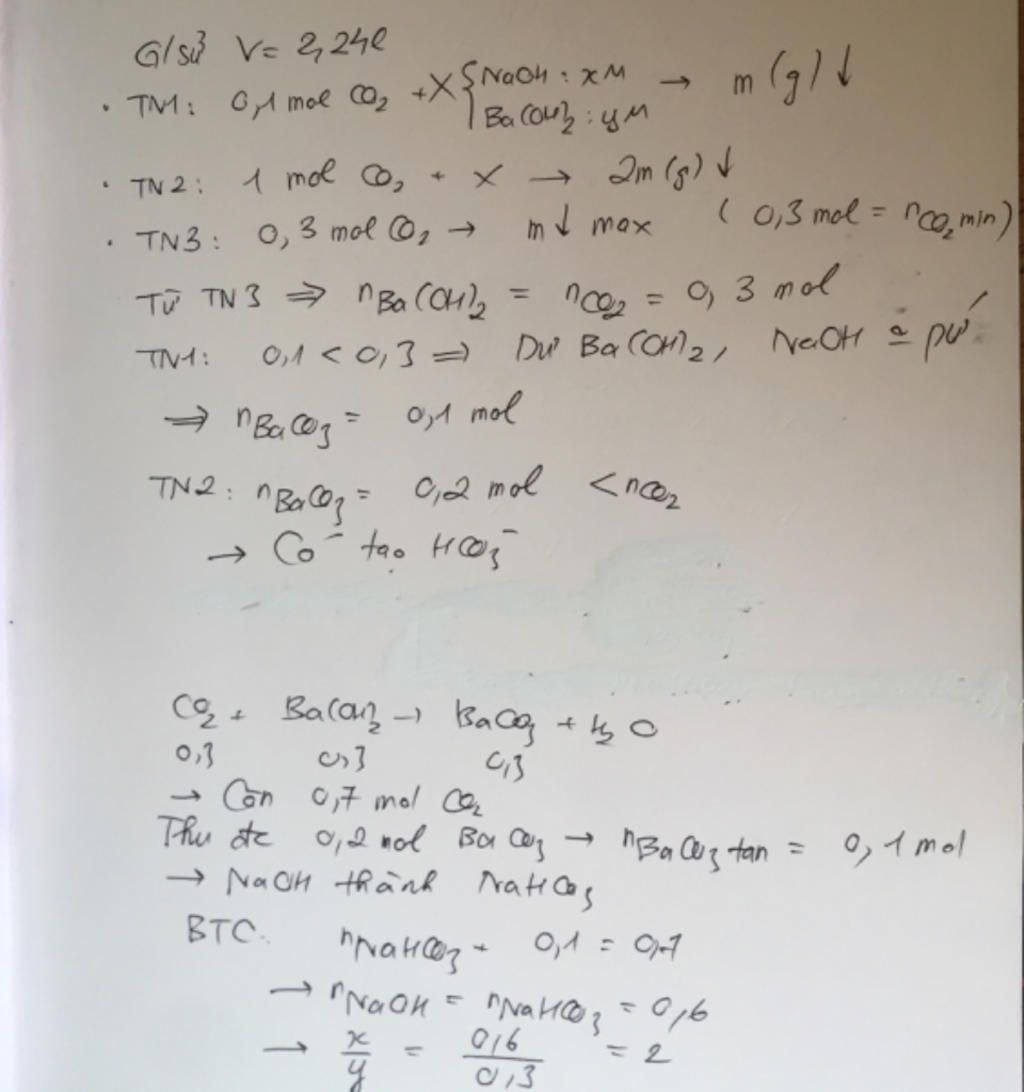 G/sử V = 2,24l
• TN1: 0,1 mol CO2 + X { NaOH : xM → m (g) ↓
Ba(OH)2 : yM
• TN2: 1 mol CO2 + X → 2m (g) ↓
• TN3: 0,3 mol CO2 → m↓ max ( 0,3 mol = nCO2 min)
Từ TN3 ⇒ nBa(OH)2 = nCO2 = 0,3 mol
TN1: 0,1 < 0,3 ⇒ Dư Ba(OH)2, NaOH pư
⇒ nBaCO3 = 0,1 mol
TN2: nBaCO3 = 0,2 mol < nCO2
→ Có tạo HCO3-
CO2 + Ba(OH)2 → BaCO3 + H2O
0,3 0,3 0,3
→ Còn 0,7 mol CO2
Thu đc 0,2 mol BaCO3 → nBaCO3 tan = 0,1 mol
→ NaOH thành NaHCO3
BTC: nNaHCO3 + 0,1 = 0,7
→ nNaOH = nNaHCO3 = 0,6
→ x/y = 0,6/0,3 = 2